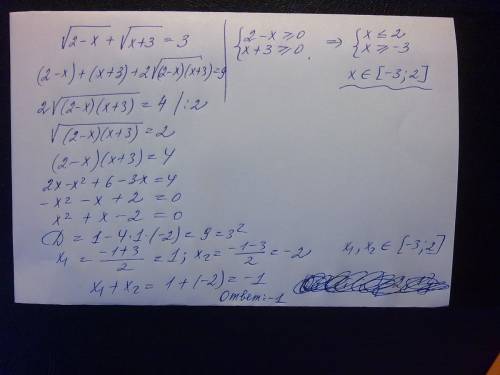 √2-x + √x+3 = 3
(2-x)+(x+3)+2√(2-x)(x+3)=9
2√(2-x)(x+3) = 4 /:2
√(2-x)(x+3) = 2
(2-x)(x+3) = 4
2x-x²+6-3x=4
-x²-x+2=0
x²+x-2=0
D = 1-4·1·(-2)=9=3²
x₁ = -1+3/2 = 1; x₂ = -1-3/2 = -2
x₁+x₂ = 1+(-2) = -1
Ответ: -1
{2-x⩾0 ⇒ {x⩽2
{x+3⩾0. {x⩾-3
x∈[-3;2]
x₁,x₂ ∈ [-3;2]